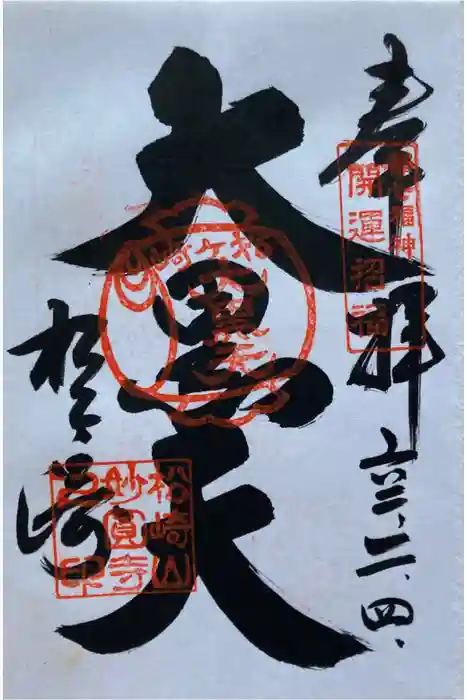 奉拝
六三、二、四、
大黒天
松ヶ崎
福神
開運招福
松ヶ崎
大黒天
松崎山
妙圓寺
之印